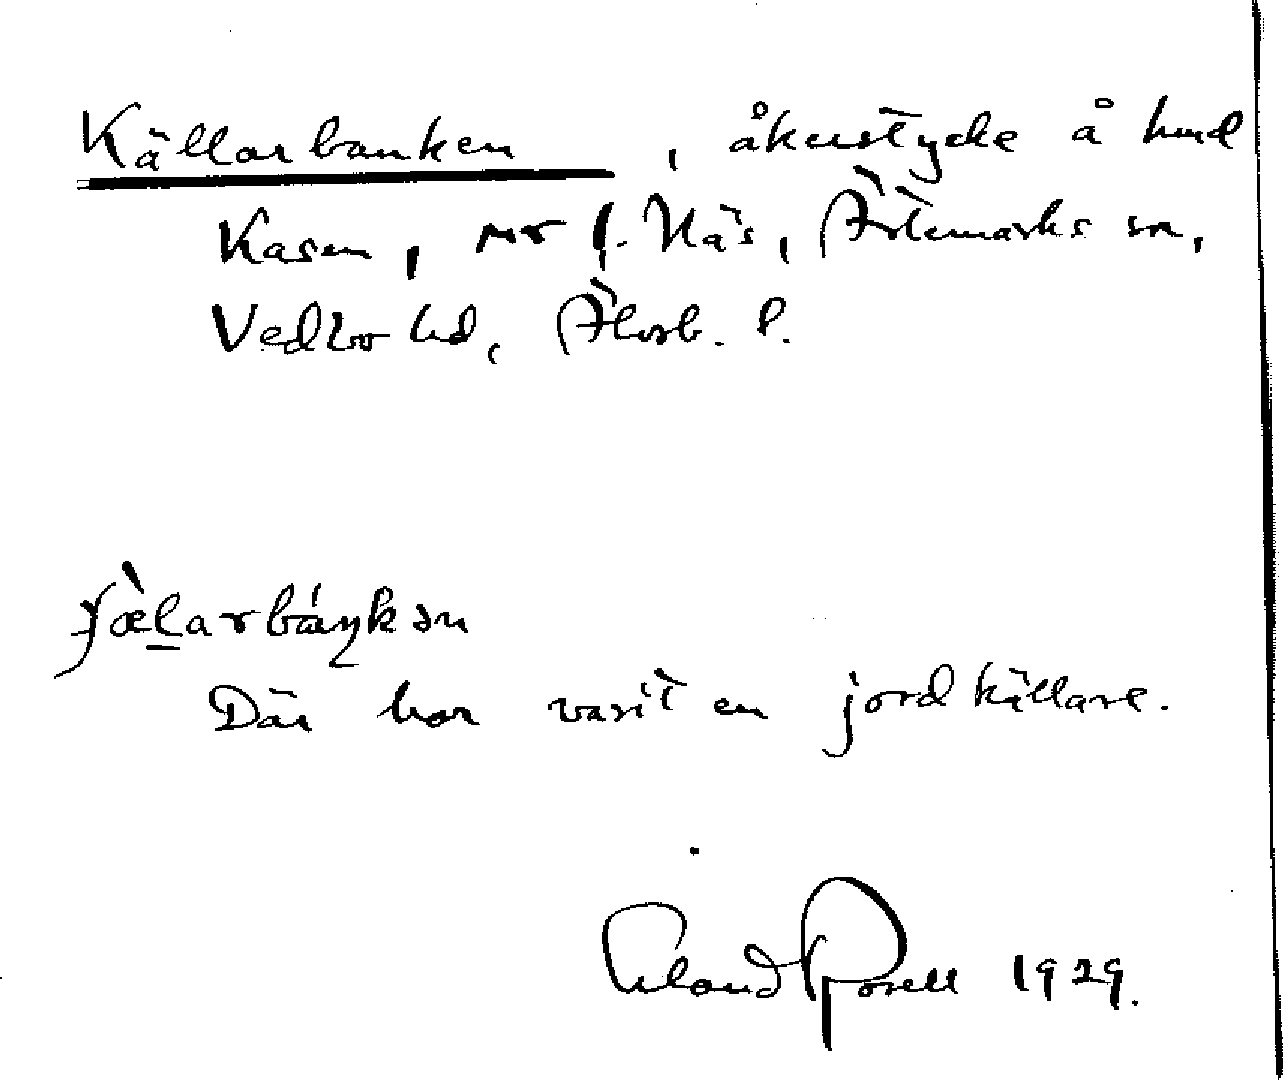 Källarbanken, åkerstycke å hmd
Kasen, nr 1. Näs, Ärtemarks sn,
Vedbo hd, Älvsb. l.
ʃæ̀larbáŋkən
Där har varit en jordkällare.
Rosell 1929.